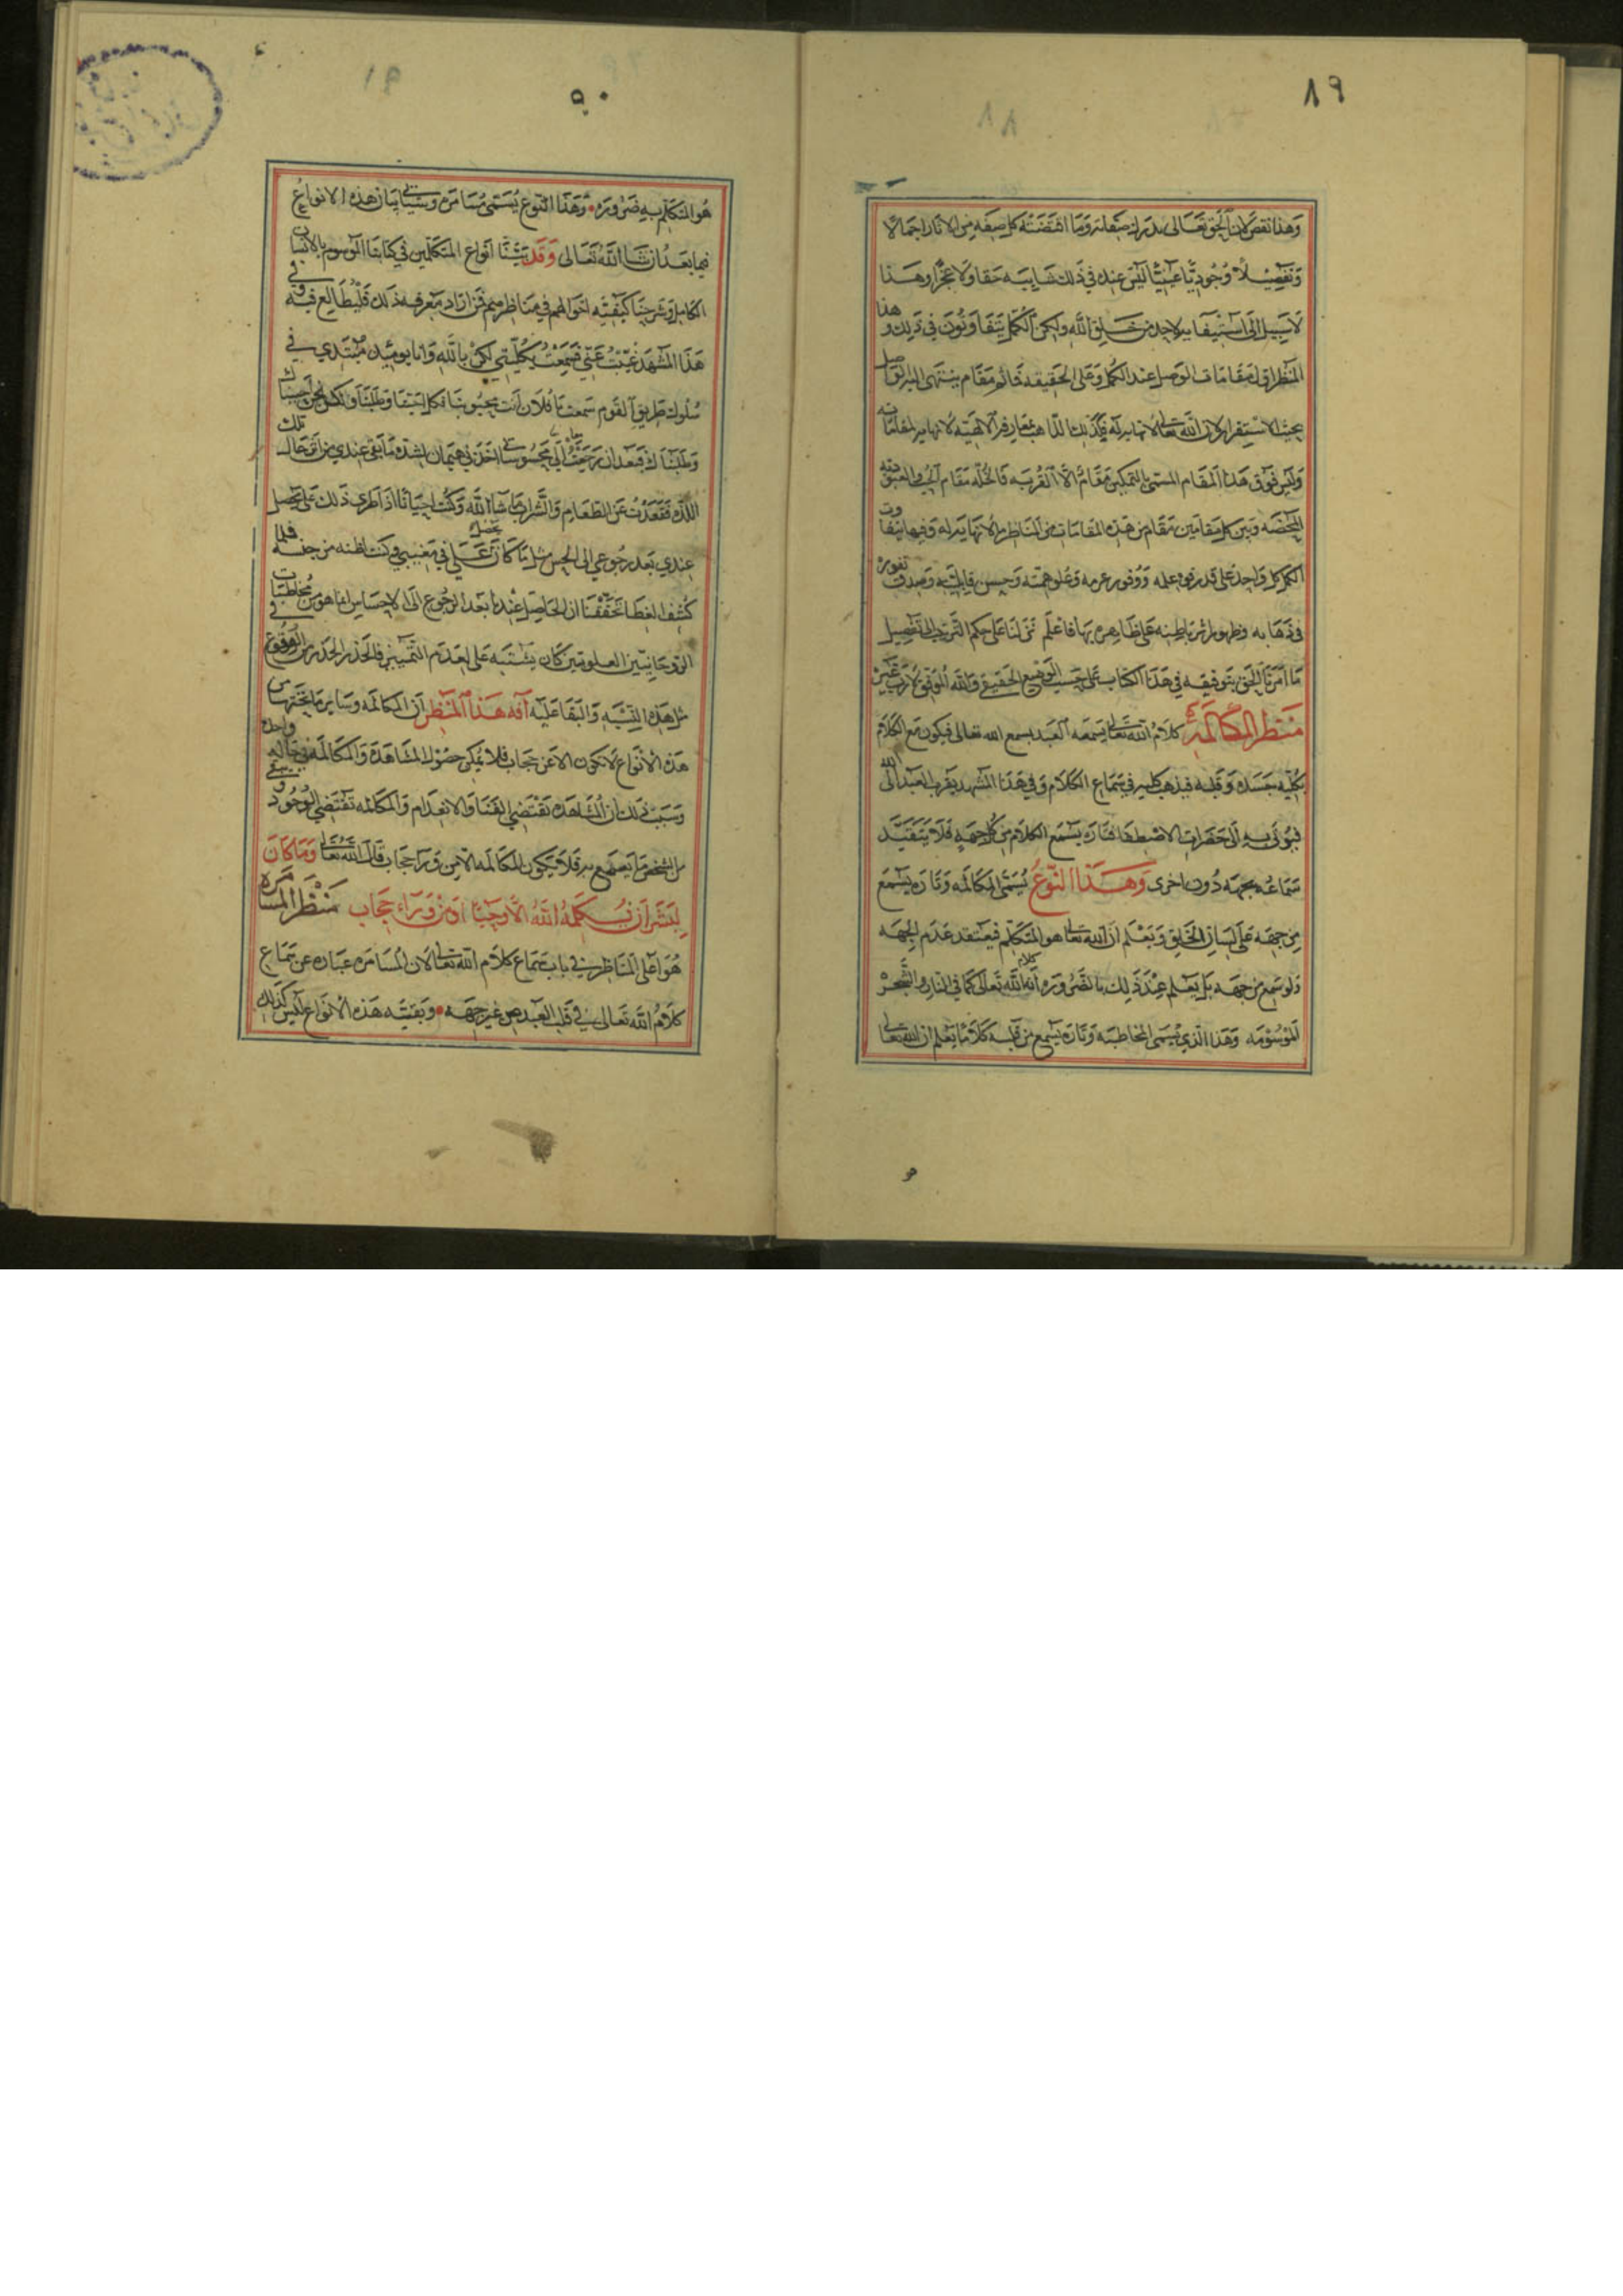 ٨٩
وهذا نقص لان الحق تعالى يدرك صفاته وما اقتضته كل صفه من الاثار اجمالا
وتفصيلا وجوديا عينيا ليس عنده في ذلك شايبه خفا ولا عجز وهذا
لا سبيل الى استيفايه لاحد من خلق الله ولكن الكمل يتفاوتون في ذلك وهذا
المنظر اول مقامات الوصل عند الكمل وعلى الحقيقه فما ثم مقام ينتهى اليه الواصل
بحيث الاستقرار لان الله تعالى لا نهايه له فكذلك الذاهب في معارفه الالهيه لا نهايه لمقاماته
وليس فوق هذا المقام المسمى بالتمكين مقام الا القربه فالخله مقام الحب فالعبودية
المحضه وبين كل مقامين مقام من هذه المقامات من المناظر ما لا نهاية له وفيها يتفاوت
الكمل كل واحد على قدر قوه علمه ووفور عزمه وعلو همته وحسن قابليته وصدق
في ذهابه وظهور اثر باطنه على ظاهره بها فاعلم نزلنا على حكم الترتيب الى تفصيل
ما امرنا الحق بتوفيقه في هذا الكتاب على حسب الوضع الحقيقي والله الموفق لا رب غيره
منظر المكالمة كلام الله تعالى يسمعه العبد بسمع الله تعالى فيكون مع الكلام
بكليه جسده وقلبه فيذهب كله في سماع الكلام وفي هذا المشهد يقرب العبد الى الله
فيؤتى به الى حضرات الاصطفا فتاره يسمع الكلام من كل جهة فلا يتقيد
سماعه بجهة دون اخرى وهذا النوع يسمى المكالمه وتاره يسمع
من جهة على لسان الخلق ويعلم ان الله تعالى هو المتكلم فيعتقد عدم الجهه
ولو سمع من جهه بل يعلم عند ذلك بالضروره انه كلام الله تعالى كما في النار والشجر
الموسومه وهذا الذي يسمى المخاطبه وتاره يسمع من قلبه كلاما يعلم ان الله تعالى
٩٠
هو المتكلم به ضروره وهذا النوع يسمى مسامره وسياتي بيان هذه الانواع
فيما بعد ان شا الله تعالى وقد بيّنا انواع المتكلمين في كتابنا الموسوم بالانسان
الكامل وشرحنا كيفيه احوالهم في مناظرهم فمن اراد معرفه ذلك فليطالع فيه وفي
هذا المشهد غبت عني فسمعت بكليتي لكن بالله وانا يوميذ مبتدي في
سلوك طريق القوم سمعت يا فلان انت محبوبنا
وطلبناك فبعد ان رجعت الى محسوساتي اخذني هيمان لشدة ما بقي عندي من اثر حال تلك
اللذه فقعدت عن الطعام والشراب ما شا الله وكنت احيانا اذا طرى ذلك على يحصل
عندي بعد رجوعي الى الحس مثل ما كان يحصل علي في مغيبي وكنت اظنه من جنسه فلما
كشف الغطا تحققنا ان الحاصل عندنا بعد الرجوع الى الاحساس انما هو من مخاطبات
الروحانيين العلويين كان يشتبه على لعدم التمييز فالحذر الحذر من الوقوع في
مثل هذه الشبه والبقا عليه آفه هذا المنظر ان المكالمه وساير ما يختص من
هذه الانواع لا تكون الا عن حجاب فلا يمكن حصول المشاهده والمكالمه في حاله واحده
وسبب ذلك ان المشاهده تقتضي الفنا والانعدام والمكالمه تقتضي الوجود
من الشخص ما يسمع به فلا يكون المكالمه الا من ورا حجاب قال الله تعالى وما كان
لبشر ان يكلمه الله الا وحيا او من وراء حجاب منظر المسامره
هو اعلى المناظر في باب سماع كلام الله تعالى لان المسامره عباره عن سماع
كلام الله تعالى في قلب العبد من غير جهه وبقيه هذه الانواع ليس كذلك